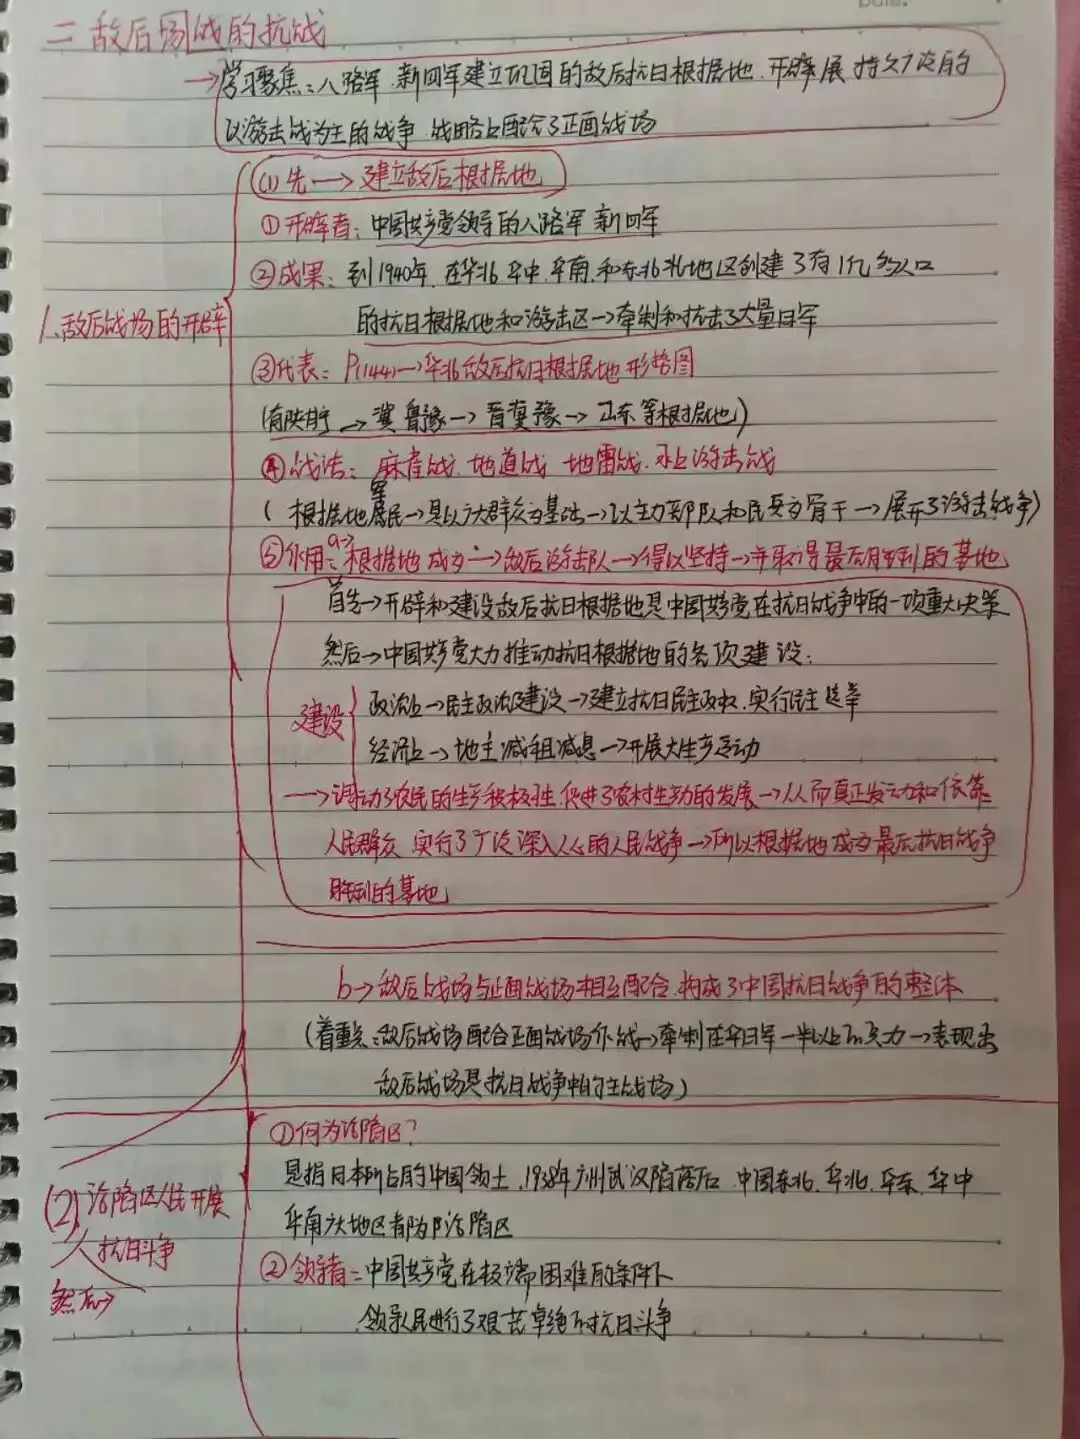 Date.
二 敌后战场的抗战
→学习聚焦：八路军.新四军建立巩固的敌后抗日根据地.开辟展 持久广泛的
以游击战为主的战争.战略上配合了正面战场
(1)先→建立敌后根据地
①开辟者：中国共产党领导的八路军 新四军
②成果：到1940年.在华北 华中.华南.和东北地区创建了有1亿多人口
1.敌后战场的开辟
的抗日根据地和游击区→牵制和抗击了大量日军
③代表：P(144)→华北敌后抗日根据地形势图
(有陕甘宁→冀鲁豫→晋冀豫→山东等根据地)
④战法：麻雀战.地道战 地雷战.水上游击战
(根据地军民→是以广大群众为基础→以主力部队和民兵为骨干→展开了游击战争)
⑤作用：a→根据地成为→敌后游击队→得以坚持→并取得最后胜利的基地
首先→开辟和建设敌后抗日根据地是中国共产党在抗日战争中的一项重大决策
然后→中国共产党大力推动抗日根据地的各项建设：
建设
政治上→民主政治建设→建立抗日民主政权.实行民主选举
经济上→地主减租减息→开展大生产运动
→调动了农民的生产积极性.促进了农村生产力的发展→从而真正发动和依靠
人民群众 实行了广泛深入人心的人民战争→所以根据地成为最后抗日战争
胜利的基地
b→敌后战场与正面战场相互配合.构成了中国抗日战争的整体
(着重点：敌后战场配合正面战场作战→牵制在华日军一半以上的兵力→表现出
敌后战场是抗日战争中的主战场)
①何为沦陷区？
是指日本所占的中国领土.1938年广州武汉陷落后.中国东北.华北.华东.华中
(2)沦陷区人民开展
华南六大地区都为沦陷区
抗日斗争
②领导者：中国共产党在极端困难的条件下
然后→
领导人民进行了艰苦卓绝的抗日斗争